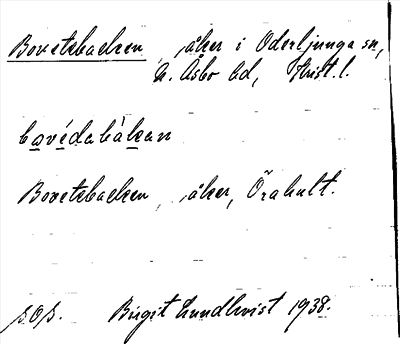 Bovetebacken, åker i Oderljunga sn,
N. Åsbo hd, Krist. l.
bovédabákan
Bovetebacken, åker, Örahult.
s.o.s. Birgit Lundkvist 1938.